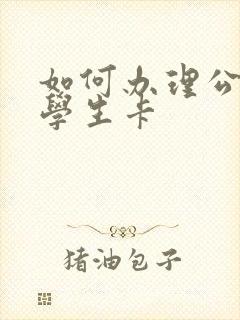 如何办理公
學生卡
猪油包子